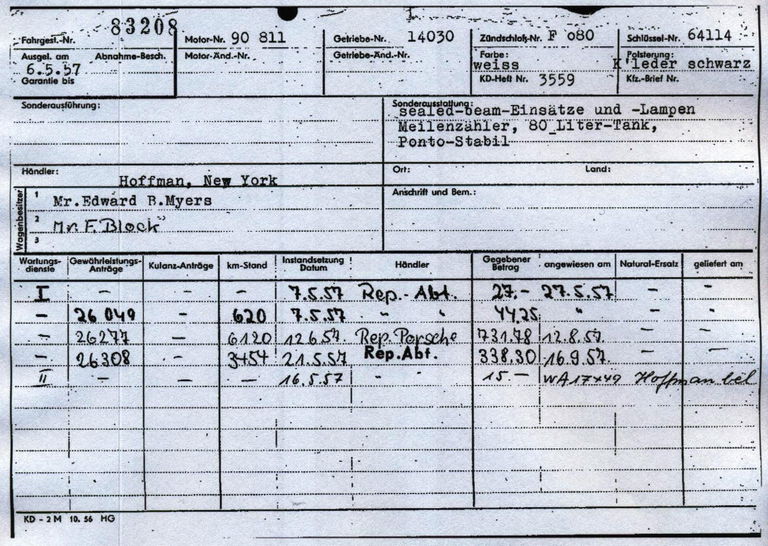 Fahrgest.-Nr. 83208 Motor-Nr. 90 811 Getriebe-Nr. 14030 Zündschloß-Nr. F 080 Schlüssel-Nr. 64114
Ausgel. am Abnahme-Besch. Motor-Änd.-Nr. Getriebe-Änd.-Nr. Farbe: Polsterung:
6.5.57 weiss K'leder schwarz
Garantie bis KD-Heft Nr. 3559 Kfz.-Brief Nr.
Sonderausführung: Sonderausstattung:
sealed-beam-Einsätze und -Lampen
Meilenzähler, 80 Liter-Tank,
Ponto-Stabil
Händler: Ort: Land:
Hoffman, New York
Wagenbesitzer
1 Mr.Edward B.Myers Anschrift und Bem.:
2 Mr. F. Block
3
Wartungsdienste Gewährleistungs-Anträge Kulanz-Anträge km-Stand Instandsetzung Datum Händler Gegebener Betrag angewiesen am Natural-Ersatz geliefert am
I - - - 7.5.57 Rep.-Abt. 27.- 27.5.57 - -
- 26 049 - 620 7.5.57 " " 44.25 " - -
- 26277 - 6120 12.6.57 Rep. Porsche 731.78 12.8.57 - -
- 26308 - 3454 21.5.57 Rep.Abt. 338.30 16.9.57 - -
II - - - 16.5.57 " " 15.- WA 17 Hoffman bel
KD - 2 M 10. 56 HG